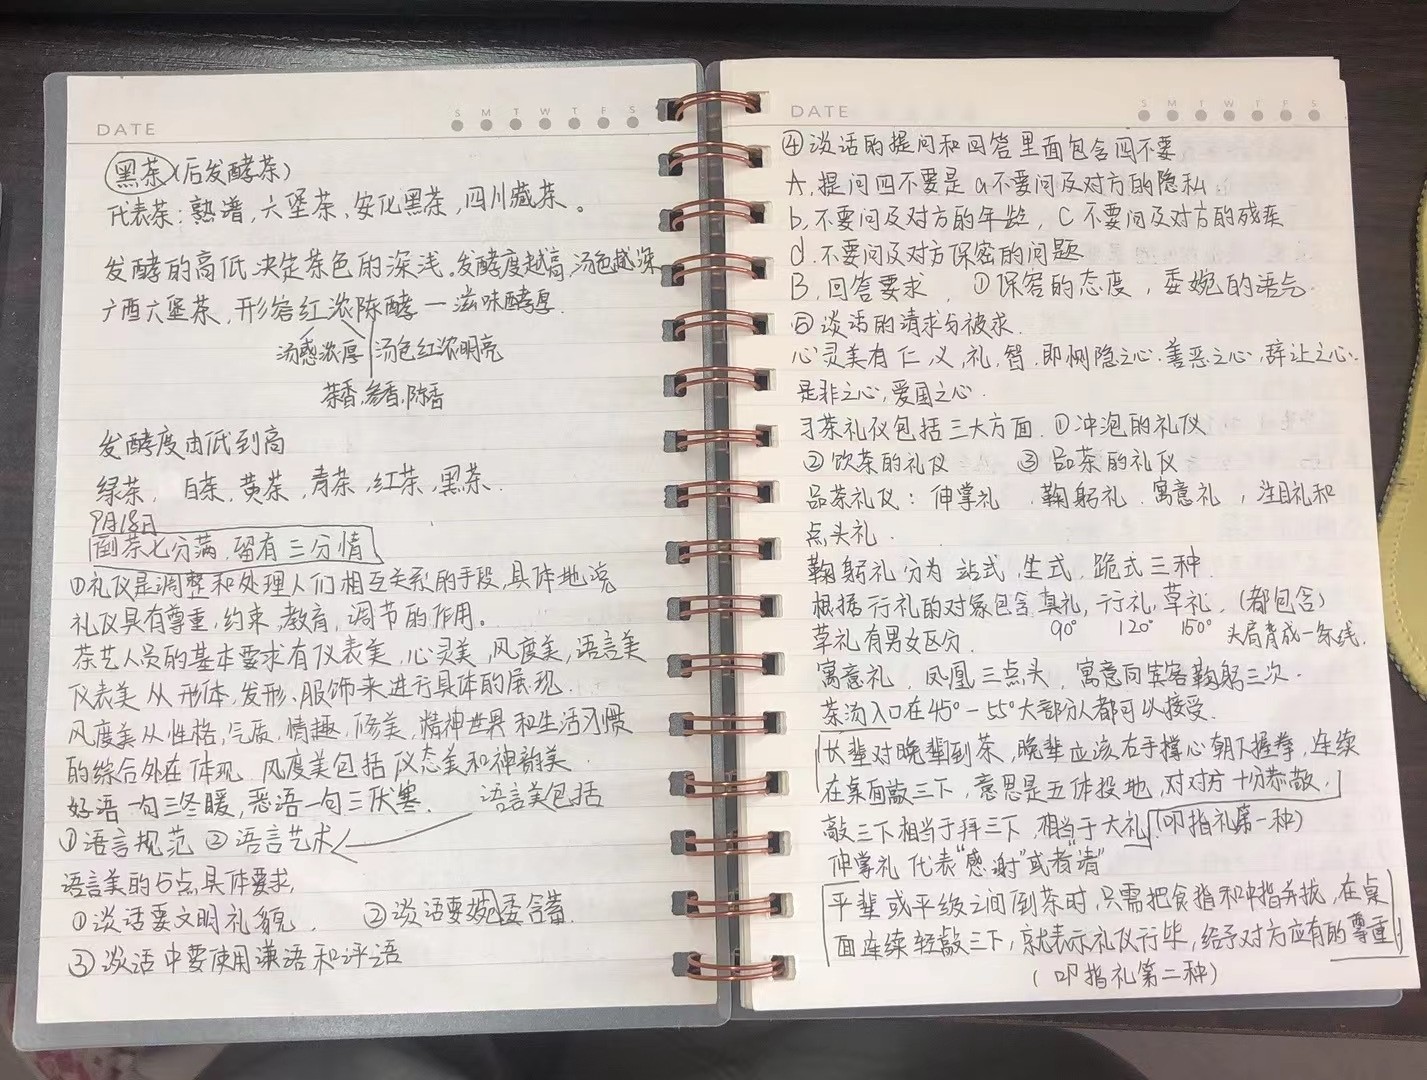 DATE
S M T W T F S
黑茶(后发酵茶)
代表茶:熟谱,六堡茶、安化黑茶,四川藏茶。
发酵的高低决定茶色的深浅。发酵度越高,汤色越深
广西六堡茶,形容红浓陈醇一滋味醇厚.
汤感浓厚 汤色红浓明亮
茶香,参香,陈香
发酵度由低到高
绿茶, 白茶,黄茶,青茶,红茶,黑茶.
9月18日
倒茶七分满,留有三分情
①礼仪是调整和处理人们相互关系的手段,具体地说
礼仪具有尊重,约束,教育,调节的作用。
茶艺人员的基本要求有仪表美,心灵美,风度美,语言美
仪表美从形体,发形、服饰来进行具体的展现.
风度美从性格,气质,情趣,修美,精神世界和生活习惯
的综合外在体现,风度美包括仪态美和神韵美.
好语一句三冬暖,恶语一句三伏寒. 语言美包括
①语言规范 ②语言艺术
语言美的5点具体要求,
①谈话要文明礼貌, ②谈话要婉委含蓄.
③谈话中要使用谦语和评语
DATE
S M T W T F S
④谈话的提问和回答里面包含四不要
A,提问四不要是a不要问及对方的隐私,
b,不要问及对方的年龄, C不要问及对方的残疾
d.不要问及对方保密的问题
B,回答要求, ①保密的态度,委婉的语气.
⑤谈话的请求与被求.
心灵美有仁,义,礼,智.即恻隐之心.善恶之心,辞让之心.
是非之心,爱国之心.
习茶礼仪包括三大方面.①冲泡的礼仪
②饮茶的礼仪 ③品茶的礼仪
品茶礼仪:伸掌礼 、鞠躬礼、寓意礼 ,注目礼和
点头礼.
鞠躬礼分为站式,坐式,跪式三种.
根据行礼的对象包含真礼,行礼,草礼,(都包含)
90° 120° 150° 头肩背成一条线.
草礼有男女区分.
寓意礼,凤凰三点头,寓意向宾客鞠躬三次.
茶汤入口在45°-55°大部分人都可以接受.
长辈对晚辈到茶,晚辈应该右手撑心朝下握拳,连续
在桌面敲三下,意思是五体投地,对对方十分恭敬,
敲三下相当于拜三下,相当于大礼.(叩指礼第一种)
伸掌礼代表“感谢”或者“请”
平辈或平级之间倒茶时,只需把食指和中指并拢,在桌
面连续轻敲三下,就表示礼仪行毕,给予对方应有的尊重.
(叩指礼第二种)